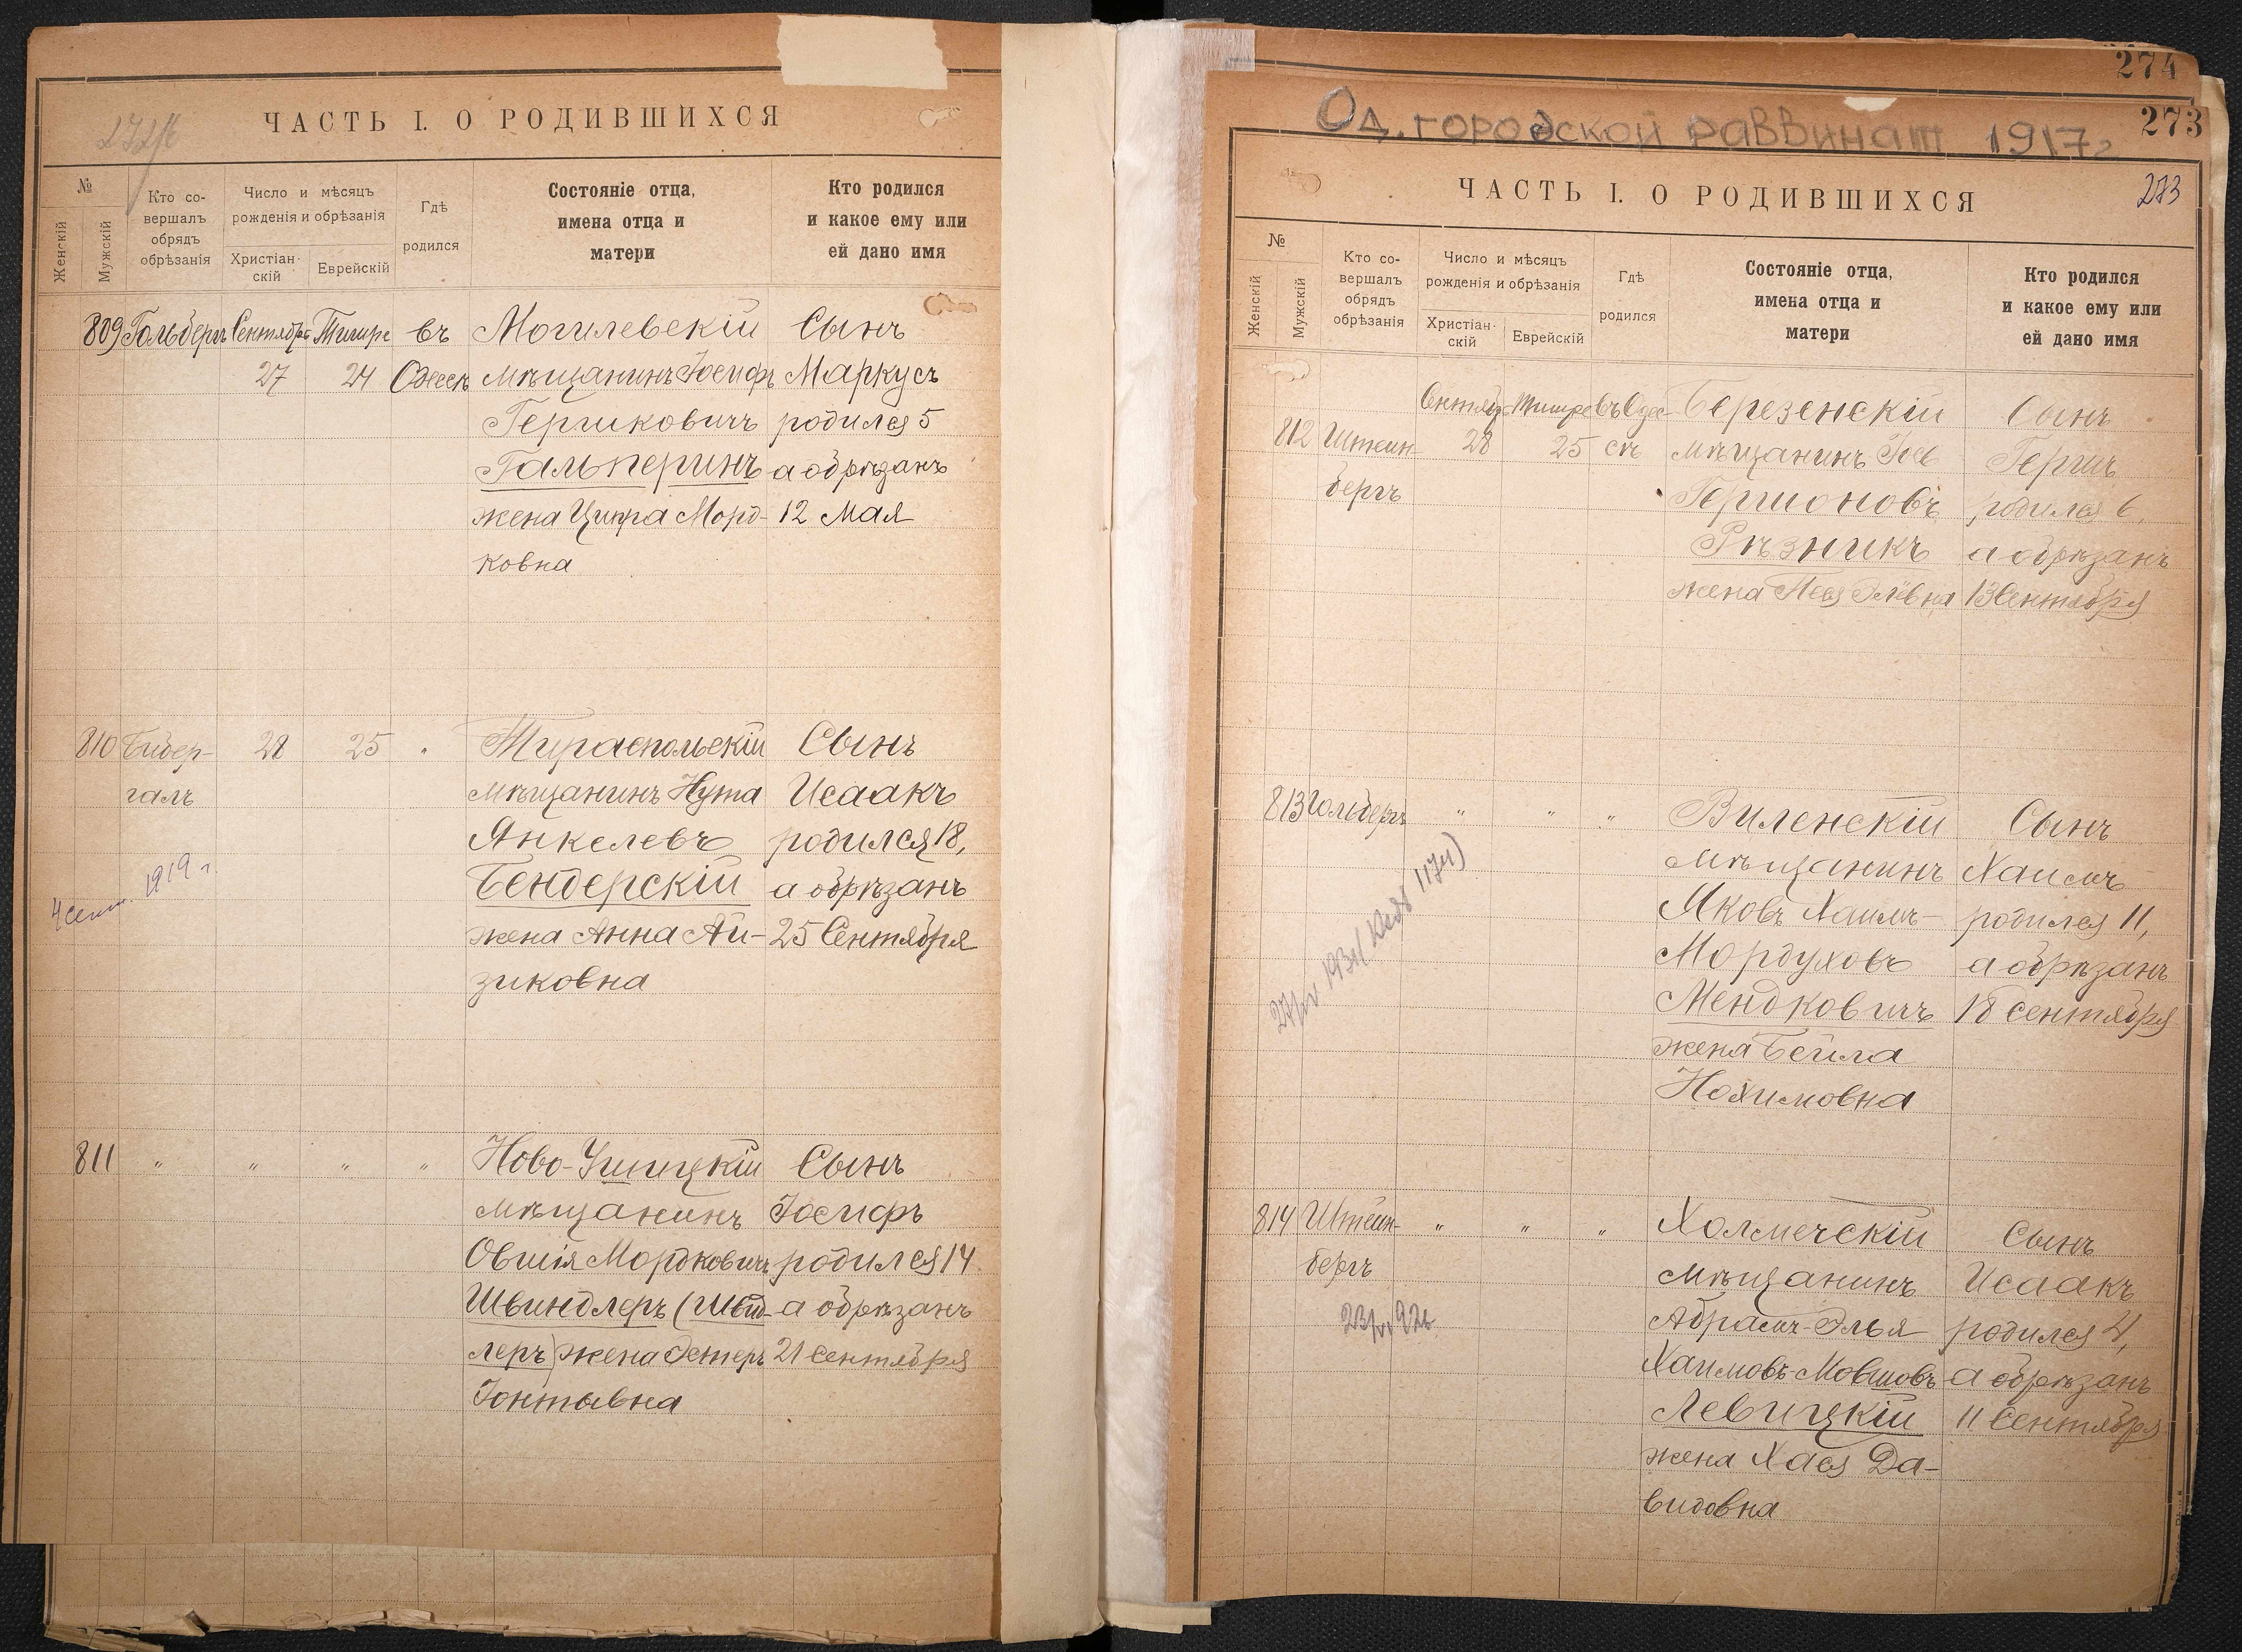 ЧАСТЬ I. О РОДИВШИХСЯ
№
Женскій
Мужскій
Кто со-
вершалъ
обрядъ
обрѣзанія
Число и мѣсяцъ
рожденія и обрѣзанія
Христіан-
скій
Еврейскій
Гдѣ
родился
Состояніе отца,
имена отца и
матери
Кто родился
и какое ему или
ей дано имя
809 Гольдбергъ Сентябрь Тишре въ Могилевскій Сынъ
27 24 Одессѣ мѣщанинъ Іосифъ Маркусъ
Гершковичъ родился 5
Гальперинъ а обрѣзанъ
жена Ципра Морд- 12 Мая
ковна
810 Бидер- 28 25 " Тираспольскій Сынъ
галъ мѣщанинъ Нута Исаакъ
Янкелевъ родился 18,
4 сент. 1919 г. Бендерскій а обрѣзанъ
жена Анна Ай- 25 Сентября
зиковна
811 " " " " Ново-Ушицкій Сынъ
мѣщанинъ Іосифъ
Овшія Мордковичъ родился 14
Швиндлеръ (Швид- а обрѣзанъ
леръ) жена Эстеръ 21 Сентября
Іонтывна
274
273
Од. городской раввинат 1917 г
ЧАСТЬ I. О РОДИВШИХСЯ
273
№
Женскій
Мужскій
Кто со-
вершалъ
обрядъ
обрѣзанія
Число и мѣсяцъ
рожденія и обрѣзанія
Христіан-
скій
Еврейскій
Гдѣ
родился
Состояніе отца,
имена отца и
матери
Кто родился
и какое ему или
ей дано имя
Сентябр Тишре въ Одес- Березенскій Сынъ
812 Штейн- 28 25 сѣ мѣщанинъ Гершъ
бергъ Гершоновъ родился 6,
Рѣзникъ а обрѣзанъ
жена 13 Сентября
813 Гольдбергъ " " " Виленскій Сынъ
мѣщанинъ Хаимъ
Яковъ Хаимъ- родился 11,
Мордуховъ а обрѣзанъ
Мендковичъ 18 Сентября
жена Бейла
Нохимовна
814 Штейн- " " " Холмечскій Сынъ
бергъ мѣщанинъ Исаакъ
Абрамъ-Элья родился 4,
Хаимовъ-Мовшовъ а обрѣзанъ
Левицкій 11 Сентября
жена Хася Да-
видовна